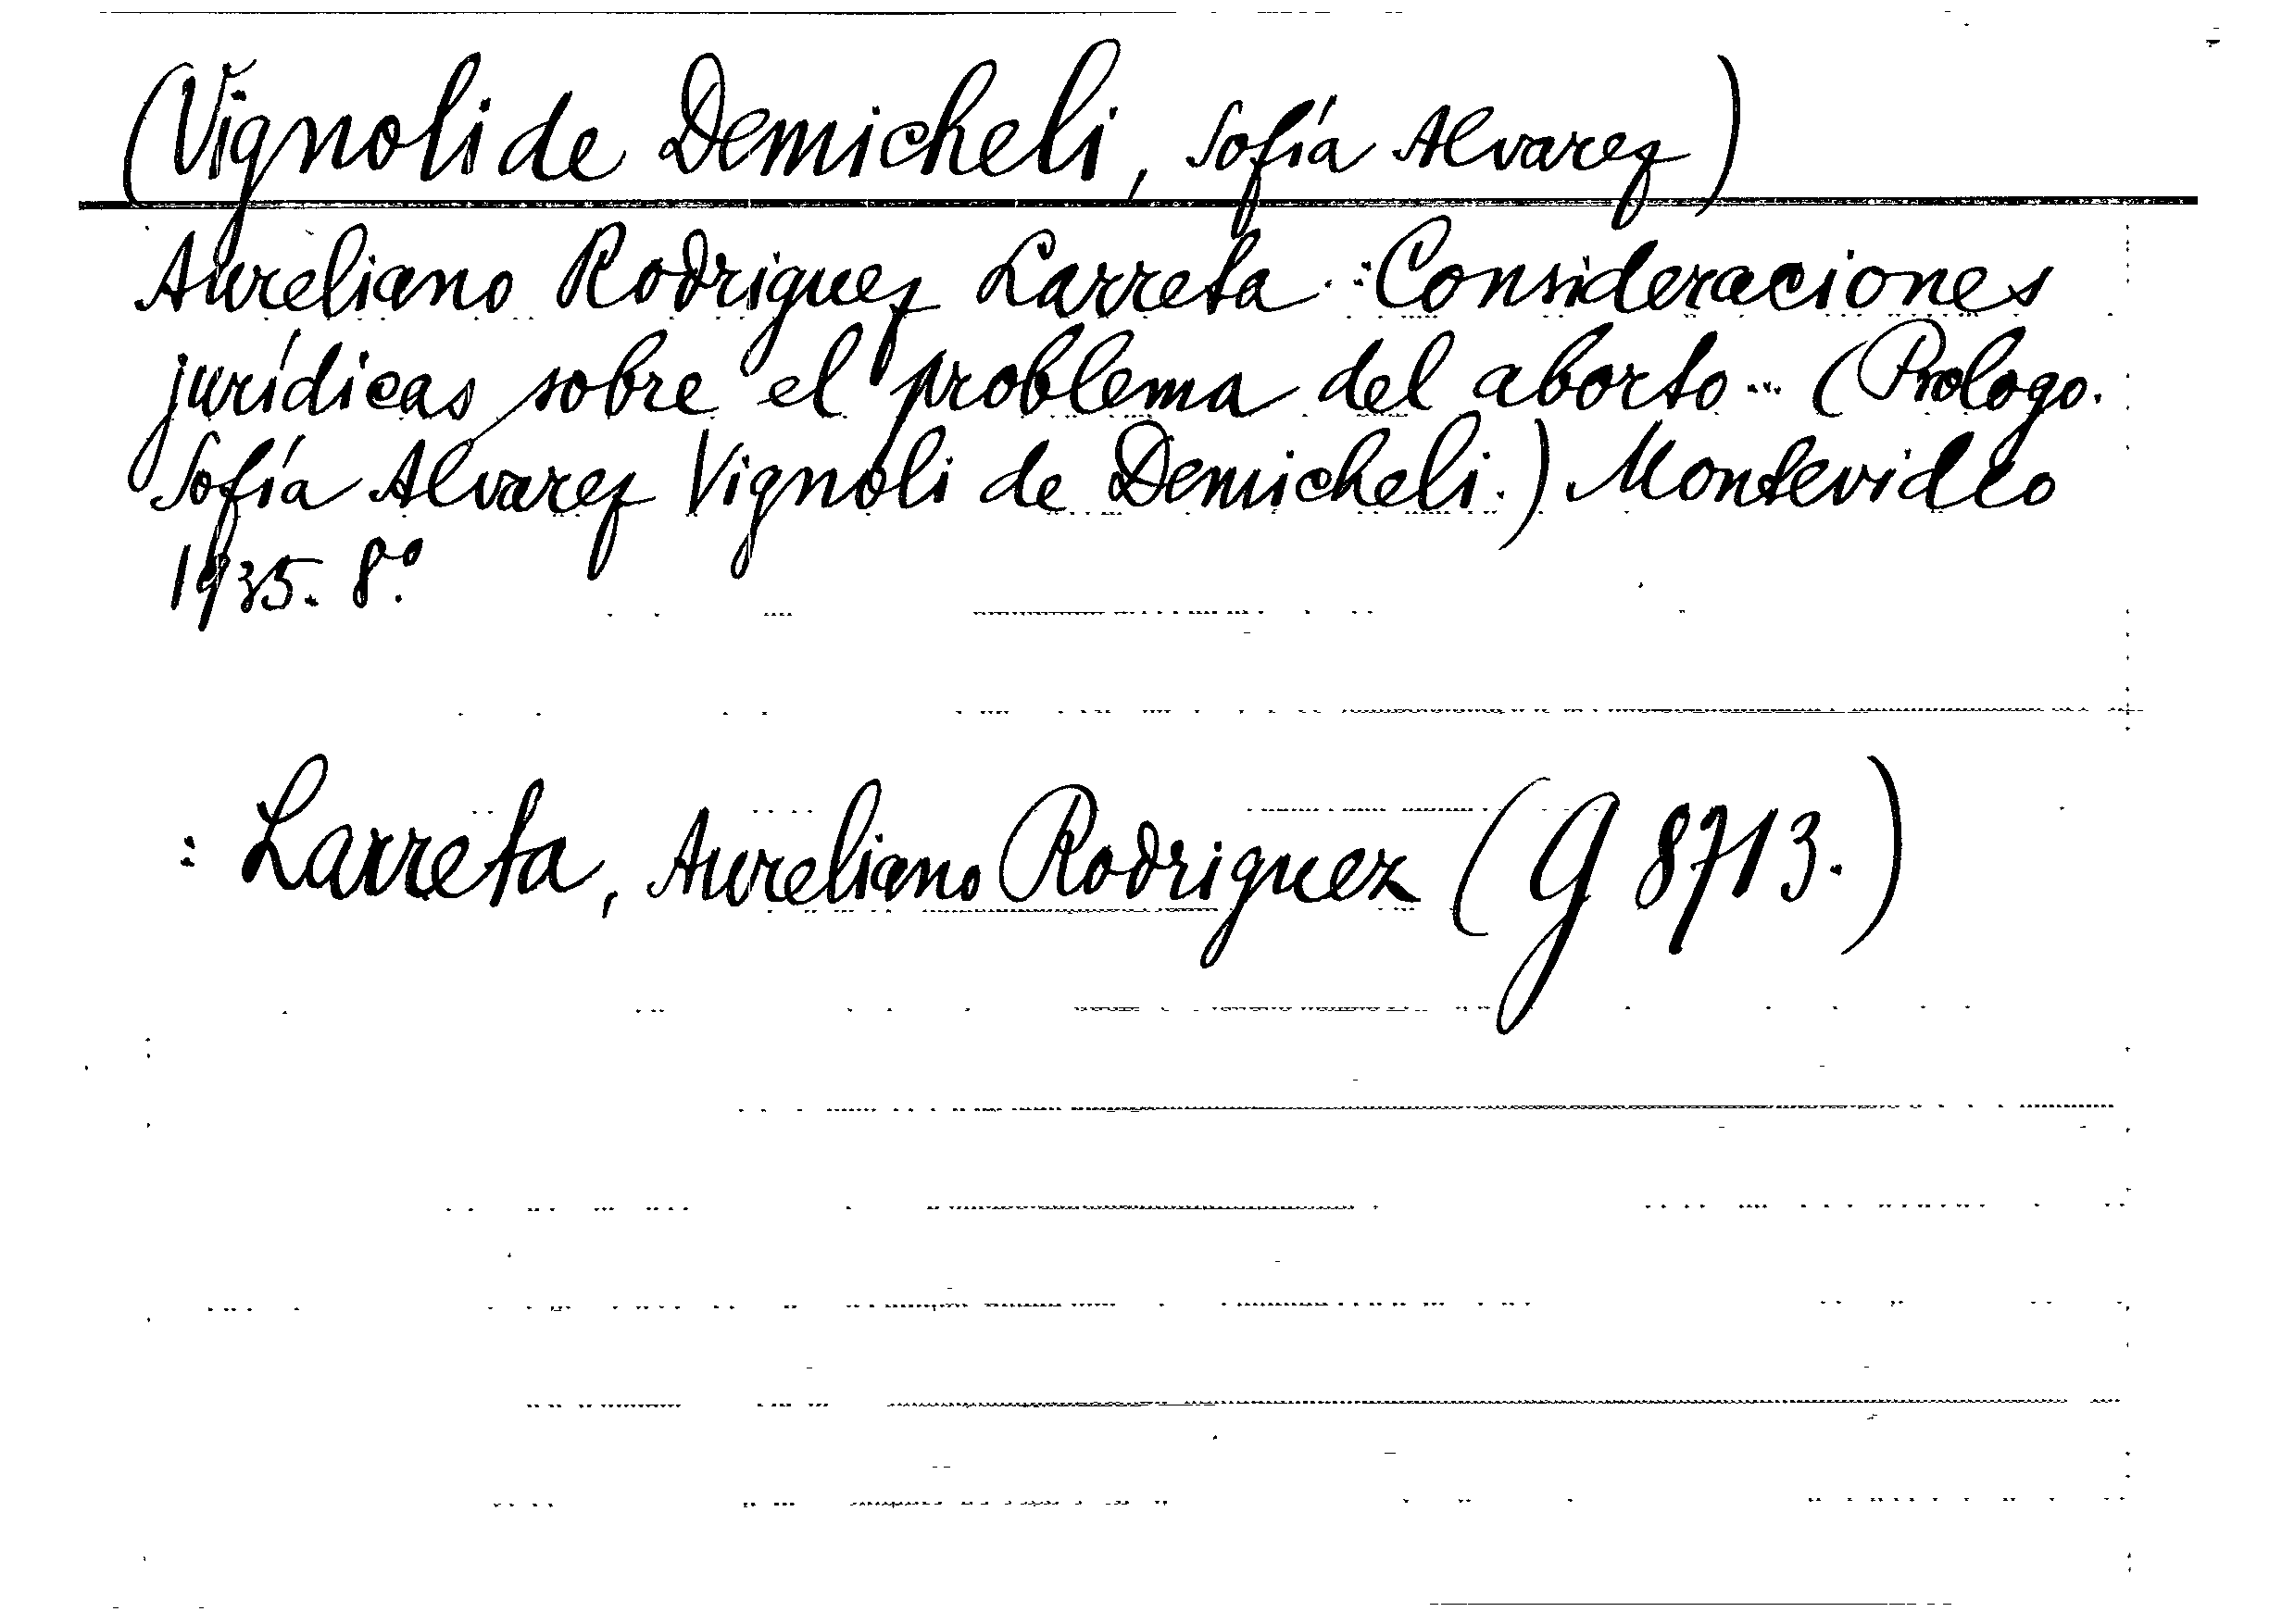 (Vignoli de Demicheli, Sofía Alvarez)
Aureliano Rodriguez Larreta : Consideraciones
jurídicas sobre el problema del aborto... (Prologo.
Sofía Alvarez Vignoli de Demicheli.) Montevideo
1935. 8º.
: Larreta, Aureliano Rodriguez (G 8713.)